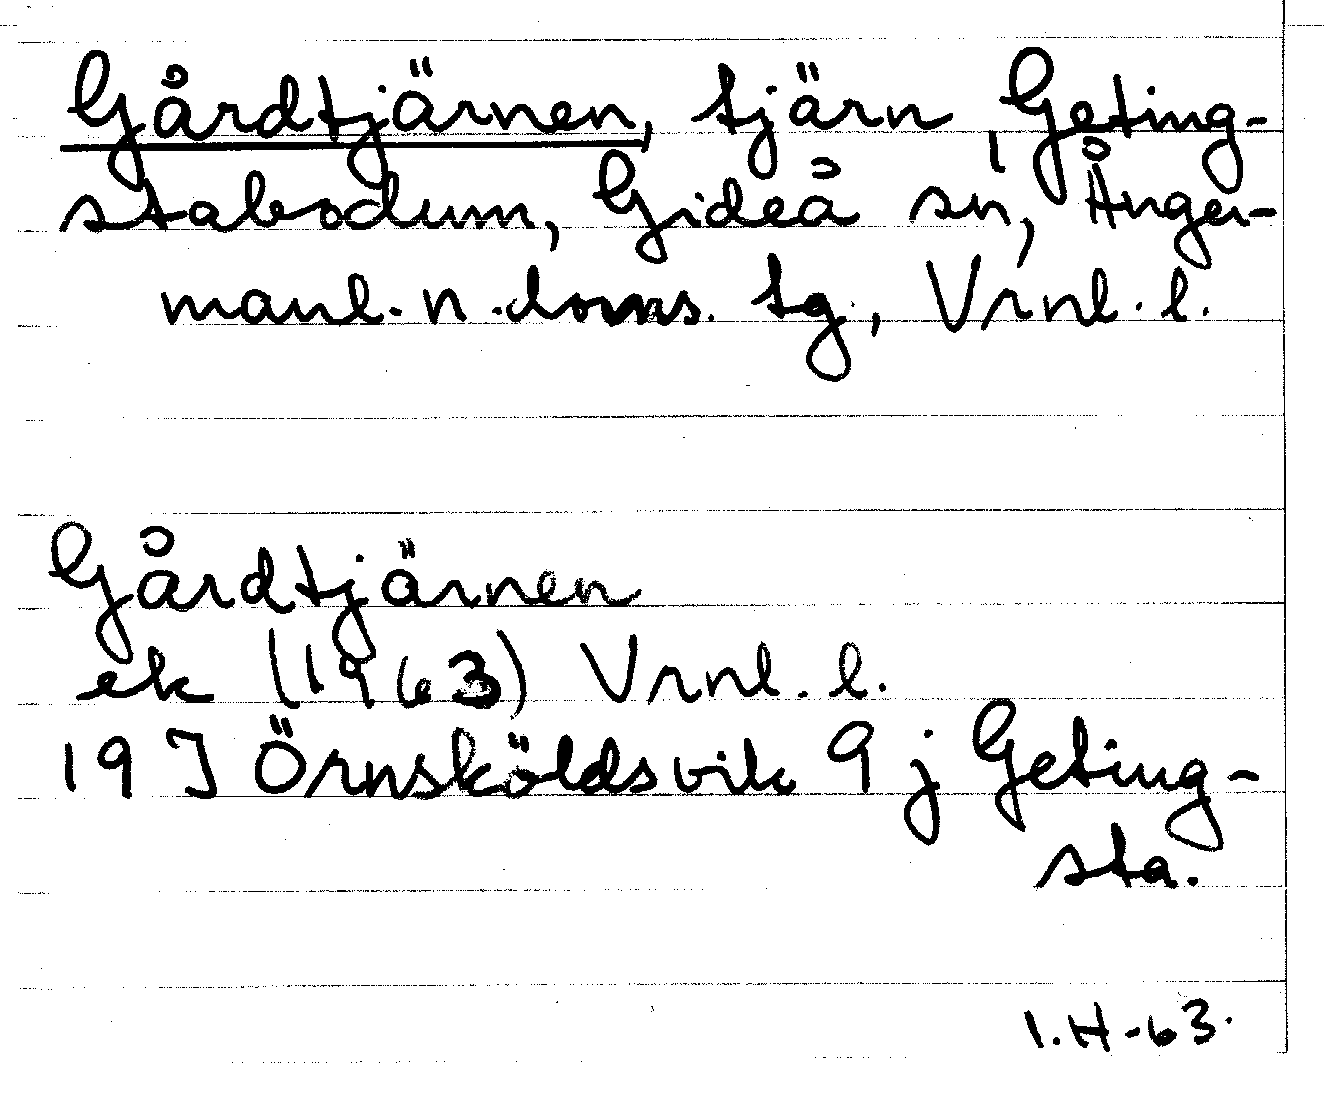 Gårdtjärnen, tjärn, Geting-
stabodum, Gideå sn, Ånger-
manl. n. doms. tg., Vrnl. l.
Gårdtjärnen
ek (1963) Vrnl. l.
19 J Örnsköldsvik 9 j Geting-
sta.
I.H-63.